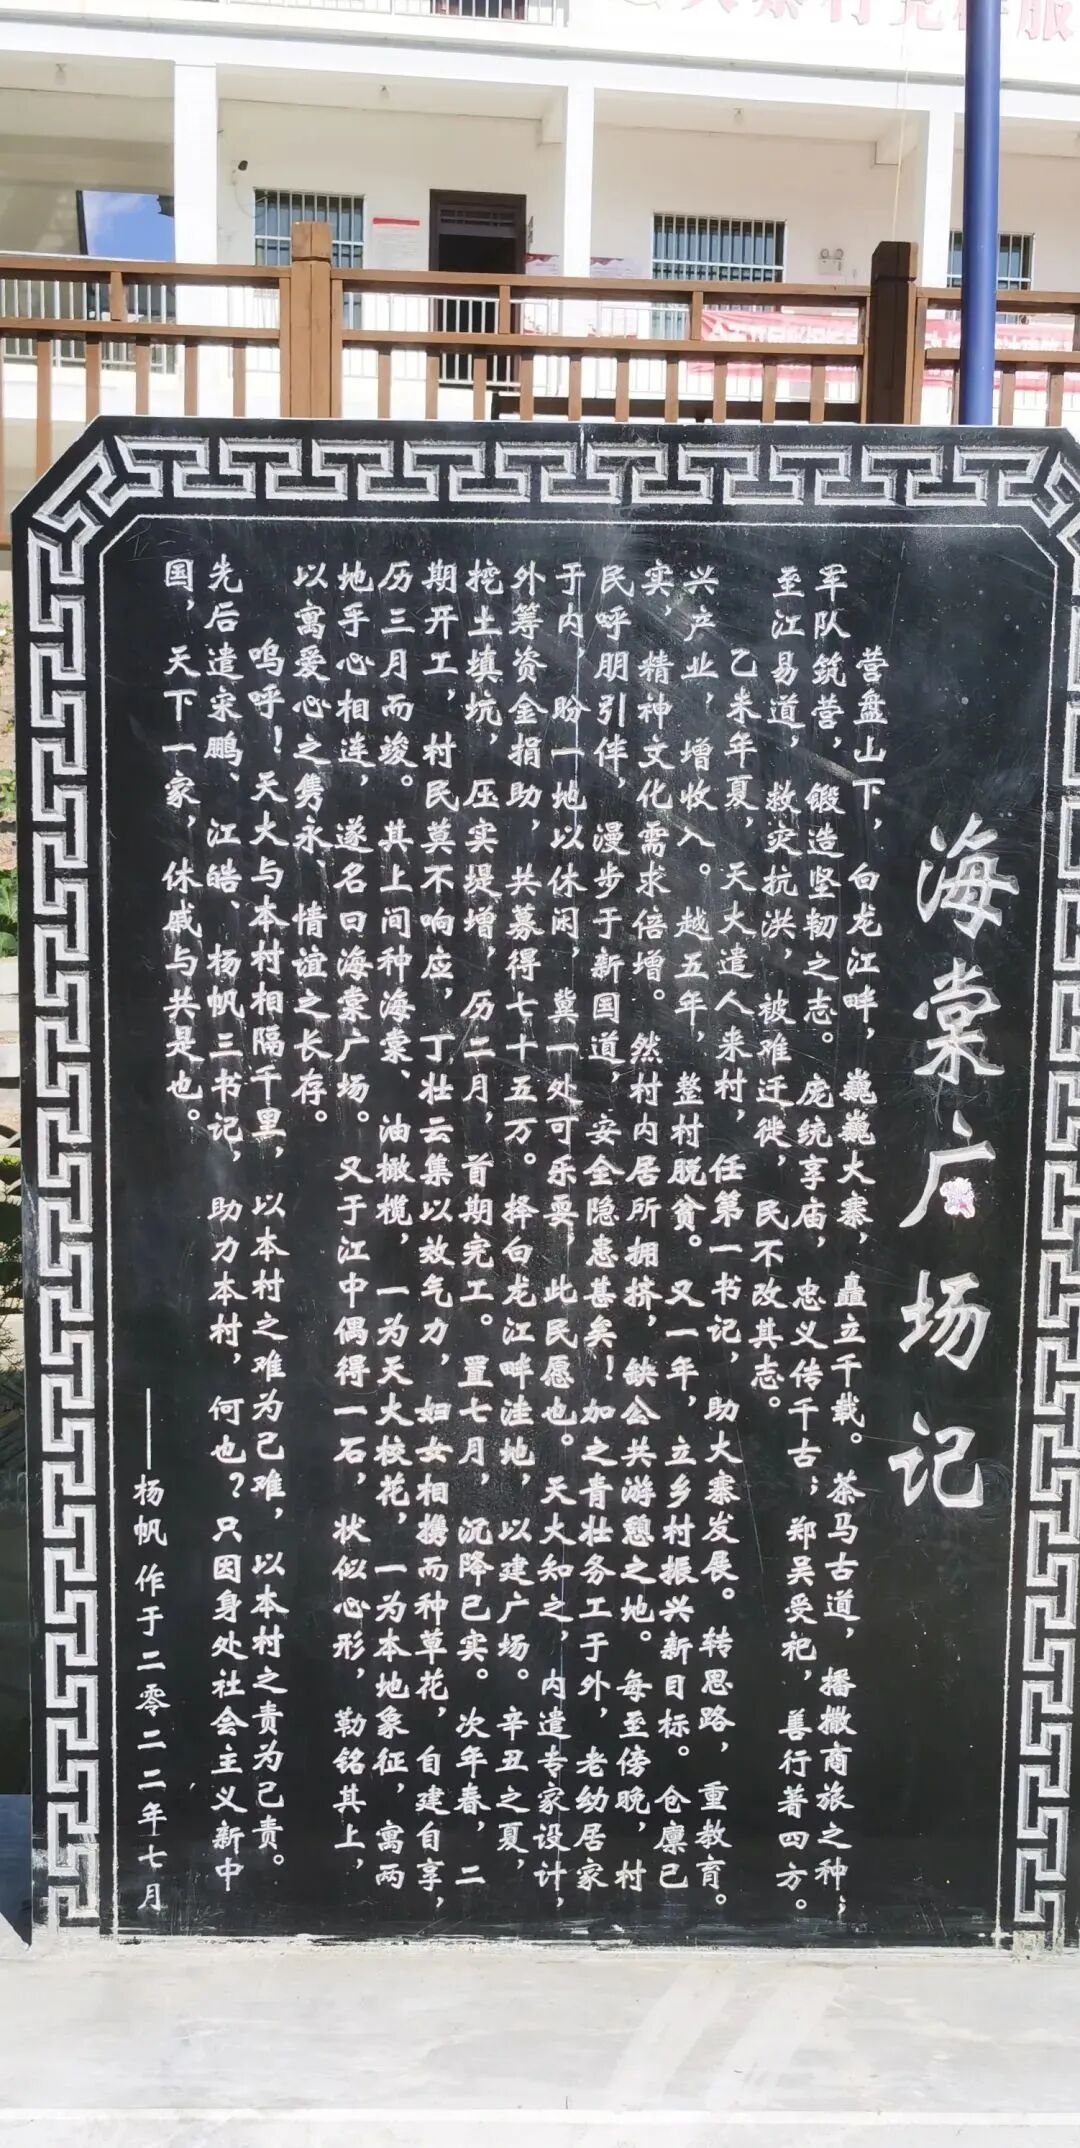 海棠广场记
营盘山下，白龙江畔，巍巍大寨，矗立千载。茶马古道，播撒商旅之种；
军队筑营，锻造坚韧之志。庞统享庙，忠义传千古；郑吴受祀，善行著四方。
至江易道，救灾抗洪，被难迁徙，民不改其志。
乙未年夏，天大遣人来村，任第一书记，助大寨发展。转思路，重教育。
兴产业，增收入。越五年，整村脱贫。又一年，立乡村振兴新目标。仓廪已
实，精神文化需求倍增。然村内居所拥挤，缺公共游憩之地。每至傍晚，村
民呼朋引伴，漫步于新国道，安全隐患甚矣！加之青壮务工于外，老幼居家
于内，盼一地以休闲，冀一处可乐耍，此民愿也。天大知之，内遣专家设计，
外筹资金捐助，共募得七十五万。择白龙江畔洼地，以建广场。辛丑之夏，
挖土填坑，压实堤增，历二月，首期完工。置七月，沉降已实。次年春，二
期开工，村民莫不响应，丁壮云集以效气力，妇女相携而种草花，自建自享，
历三月而竣。其上间种海棠、油橄榄，一为天大校花，一为本地象征，寓两
地手心相连，遂名曰海棠广场。又于江中偶得一石，状似心形，勒铭其上，
以寓爱心之隽永、情谊之长存。
呜呼！天大与本村相隔千里，以本村之难为己难，以本村之责为己责。
先后遣宋鹏、江皓、杨帆三书记，助力本村，何也？只因身处社会主义新中
国，天下一家，休戚与共是也。
——杨帆作于二零二二年七月